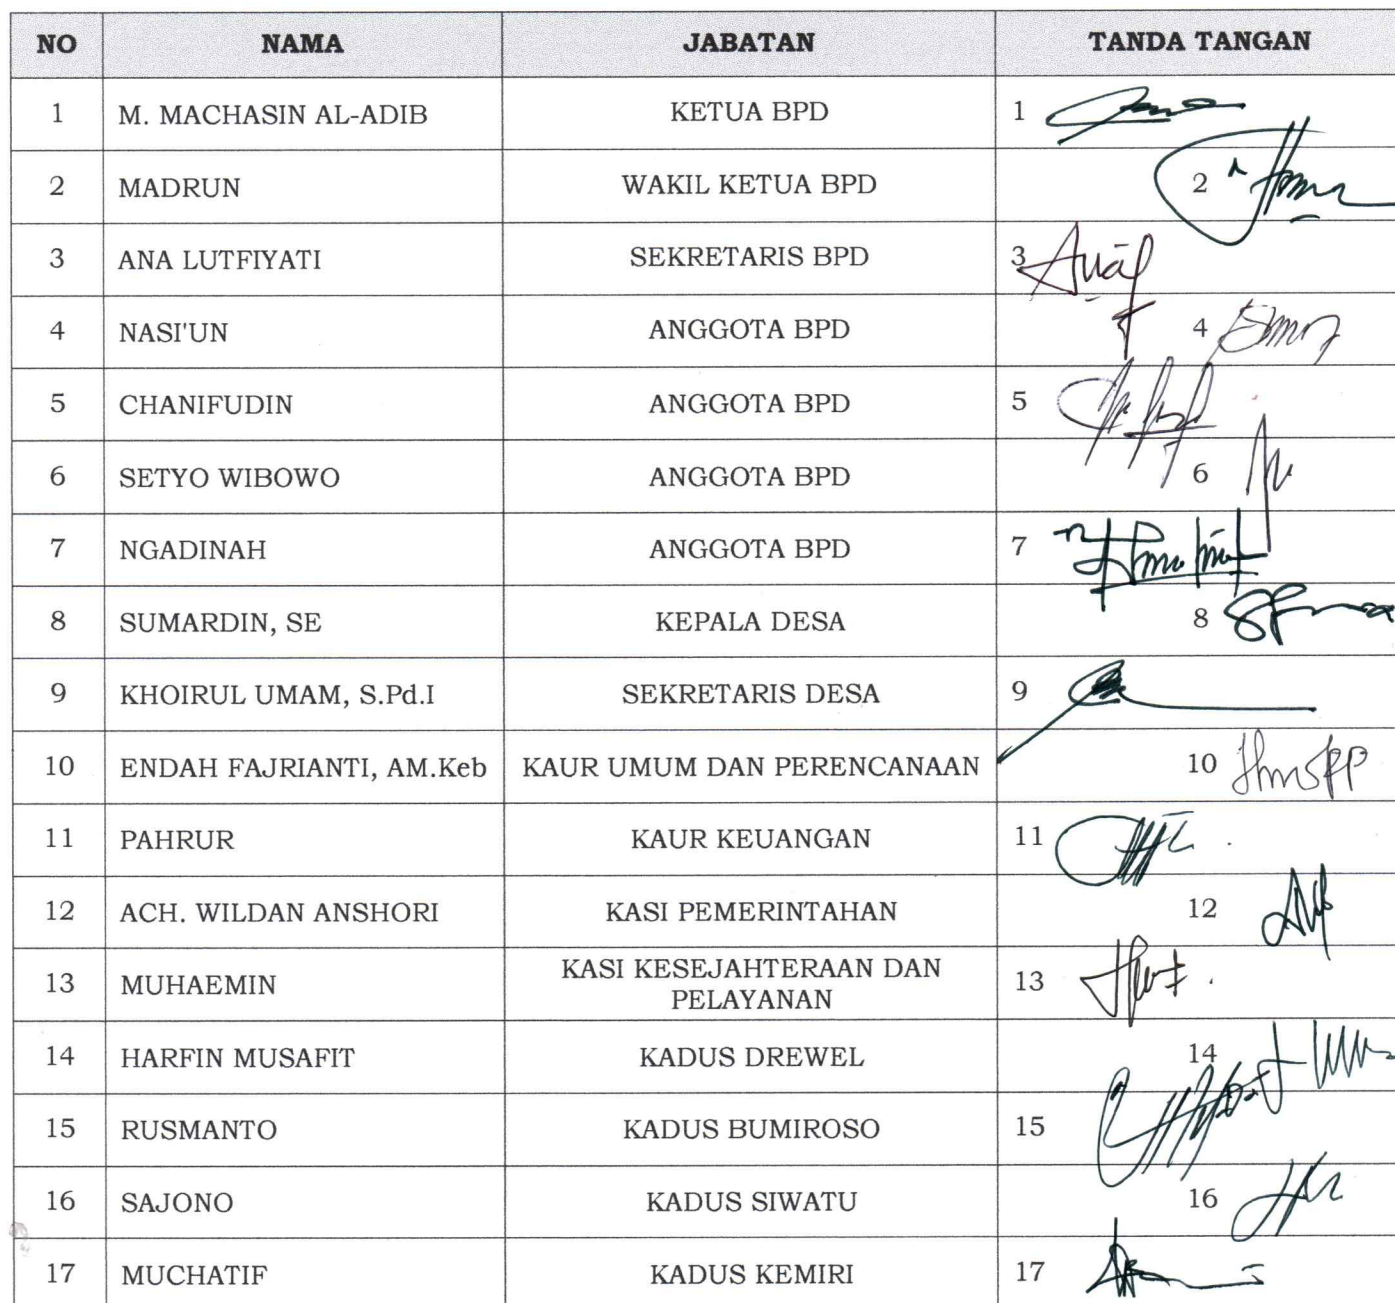 NO NAMA JABATAN TANDA TANGAN
1 M. MACHASIN AL-ADIB KETUA BPD 1
2 MADRUN WAKIL KETUA BPD 2
3 ANA LUTFIYATI SEKRETARIS BPD 3
4 NASI'UN ANGGOTA BPD 4
5 CHANIFUDIN ANGGOTA BPD 5
6 SETYO WIBOWO ANGGOTA BPD 6
7 NGADINAH ANGGOTA BPD 7
8 SUMARDIN, SE KEPALA DESA 8
9 KHOIRUL UMAM, S.Pd.I SEKRETARIS DESA 9
10 ENDAH FAJRIANTI, AM.Keb KAUR UMUM DAN PERENCANAAN 10
11 PAHRUR KAUR KEUANGAN 11
12 ACH. WILDAN ANSHORI KASI PEMERINTAHAN 12
13 MUHAEMIN KASI KESEJAHTERAAN DAN
PELAYANAN 13
14 HARFIN MUSAFIT KADUS DREWEL 14
15 RUSMANTO KADUS BUMIROSO 15
16 SAJONO KADUS SIWATU 16
17 MUCHATIF KADUS KEMIRI 17